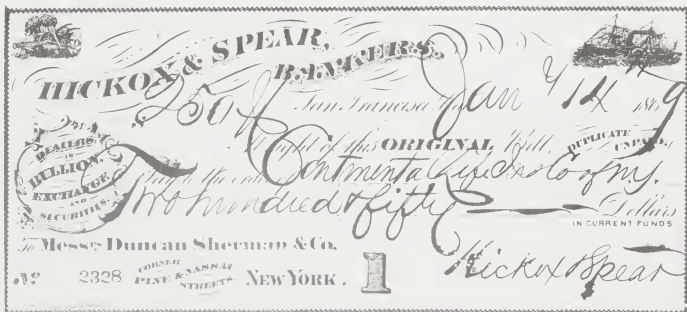 HICKOX & SPEAR,
BANKERS.
$250 San Francisco, Jan'y 14th 1869
DEALERS
IN
BULLION,
EXCHANGE
AND
SECURITIES.
At sight of this ORIGINAL Bill, DUPLICATE UNPAID,
Pay to the order Continental Life Ins Co of N.Y.
Two hundred & fifty Dollars
IN CURRENT FUNDS
To Messrs Duncan Sherman & Co.
No 2328 CORNER PINE & NASSAU STREETS. NEW YORK. 1
Hickox & Spear